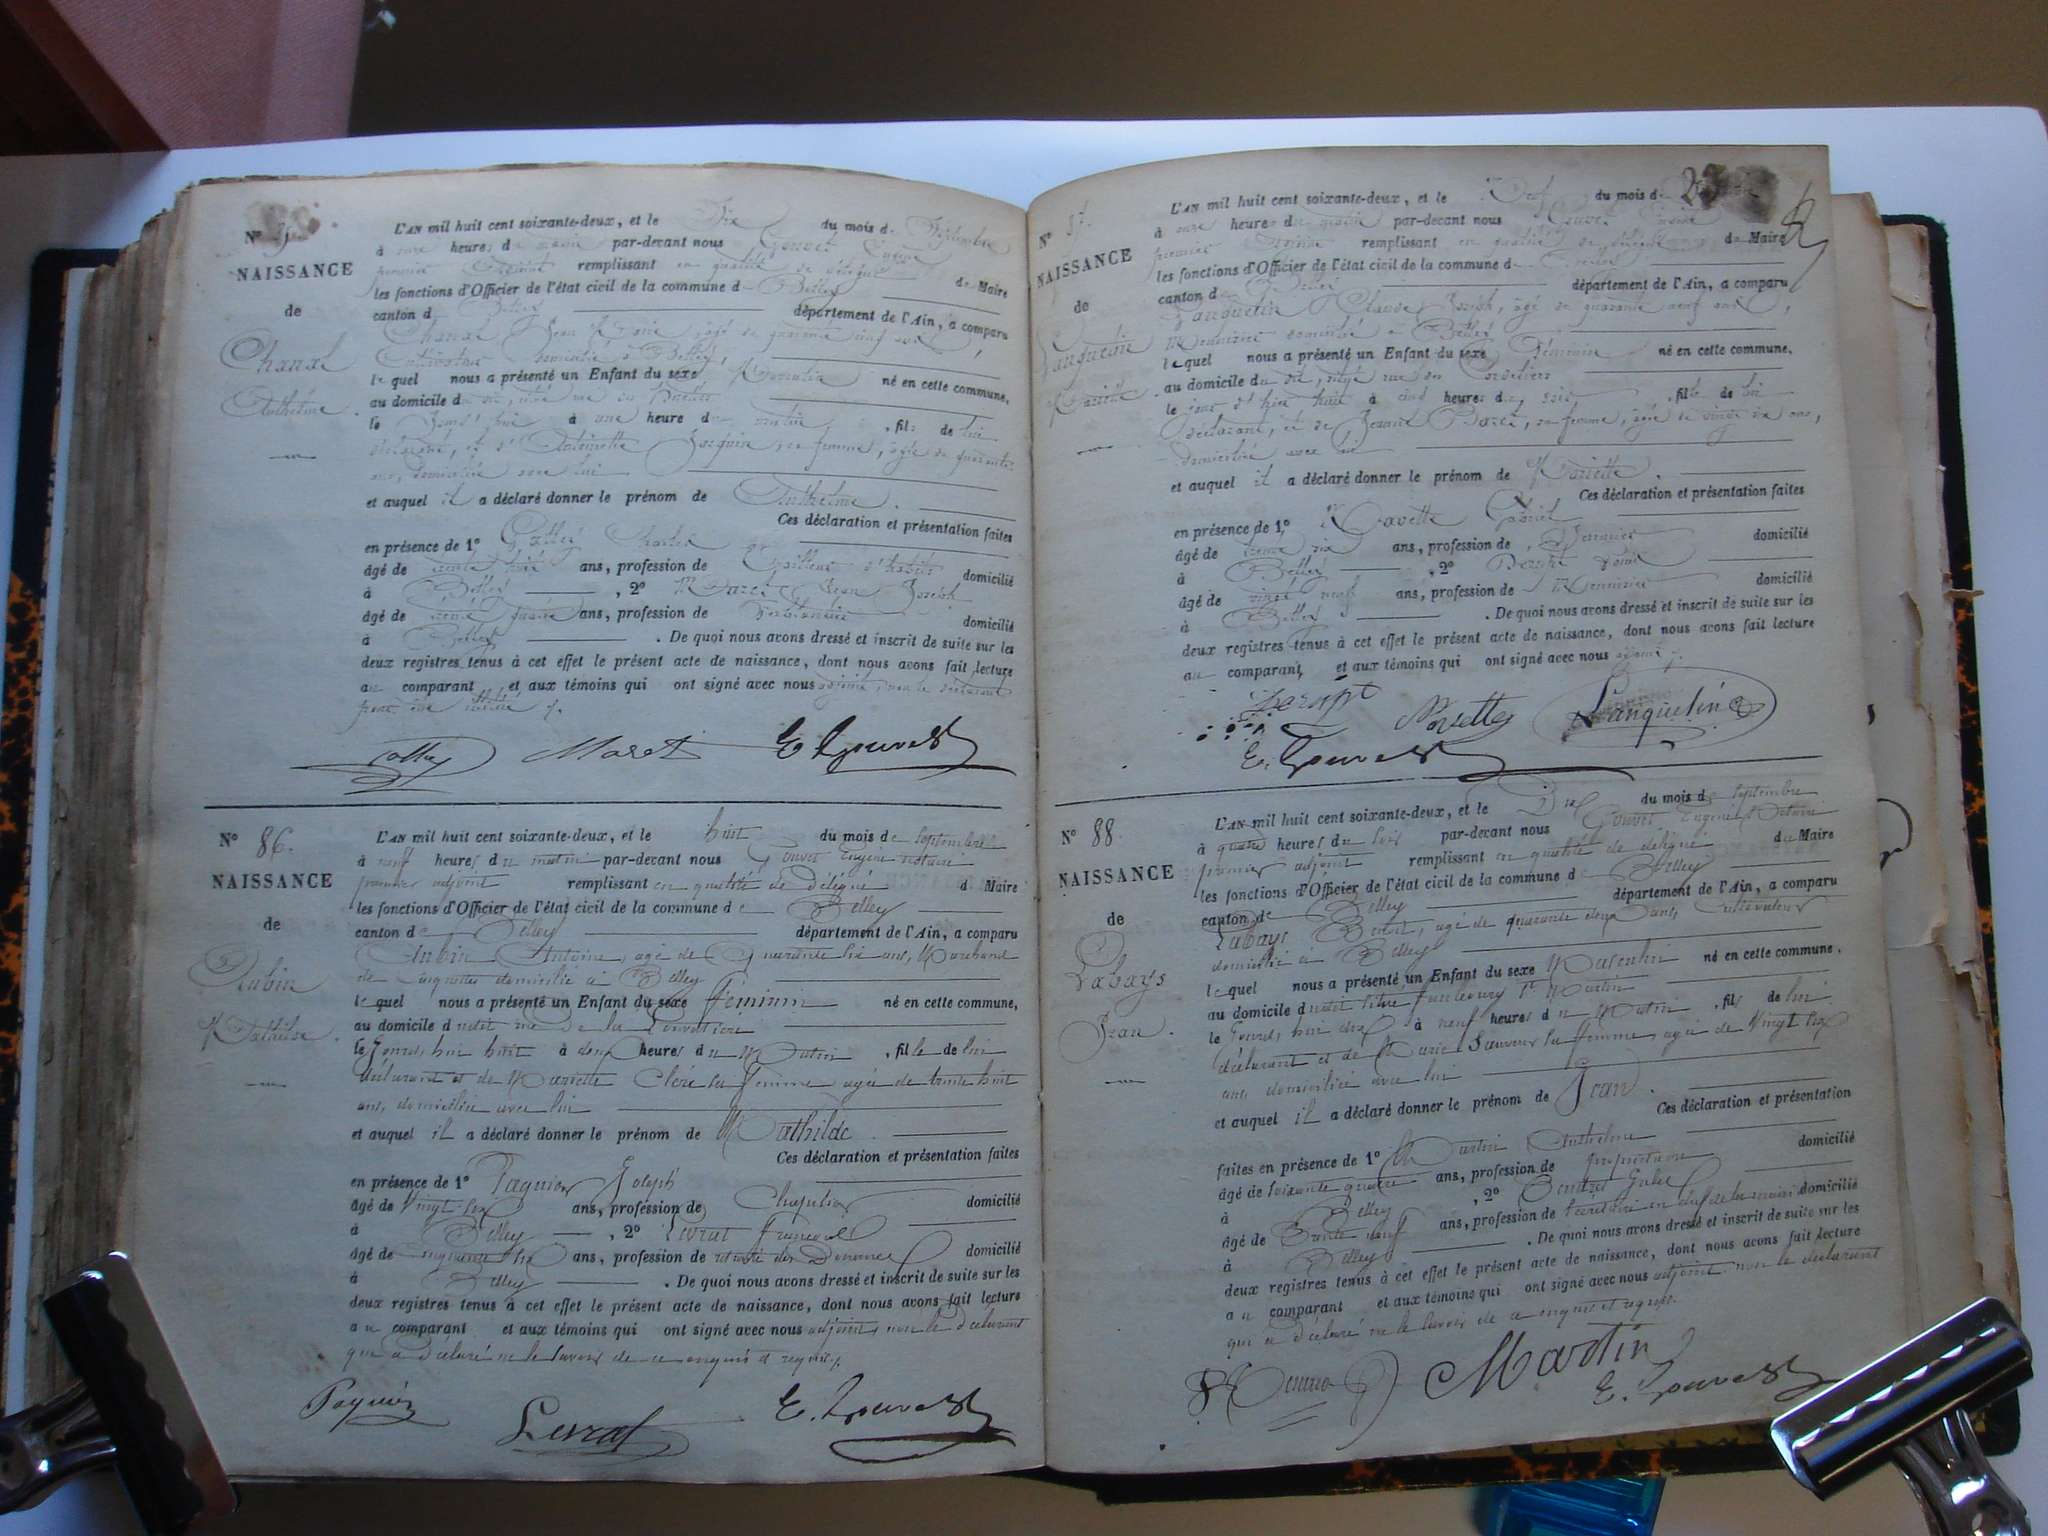 L'AN mil huit cent soixante-deux, et le Six du mois de Septembre
N°
à onze heures du matin par-devant nous Gouvet Eugène
NAISSANCE
premier Adjoint remplissant en qualité de délégué du Maire
les fonctions d'Officier de l'état civil de la commune de Belley
de
canton de Belley département de l'Ain, a comparu
Chanal
Chanal Jean âgé de quarante cinq ans,
Anthelme.
Cultivateur domicilié à Belley,
lequel nous a présenté un Enfant du sexe Masculin né en cette commune,
au domicile du dit, rue
le jour d'hui à une heure du matin, fils de lui
déclarant, et d'Antoinette sa femme, âgée de quarante
ans, domiciliée avec lui
et auquel il a déclaré donner le prénom de Anthelme.
Ces déclaration et présentation faites
en présence de 1° Charles
âgé de ans, profession de Tailleur d'habits domicilié
à Belley, 2° Maret Jean Joseph
âgé de ans, profession de domicilié
à Belley. De quoi nous avons dressé et inscrit de suite sur les
deux registres tenus à cet effet le présent acte de naissance, dont nous avons fait lecture
au comparant et aux témoins qui ont signé avec nous adjoint, non le déclarant
pour être illitéré
Maret E. Gouvet
N° 86.
L'AN mil huit cent soixante-deux, et le huit du mois de septembre
à neuf heures du matin par-devant nous Gouvet Eugène notaire
NAISSANCE
premier adjoint remplissant en qualité de délégué du Maire
les fonctions d'Officier de l'état civil de la commune de Belley
de
canton de Belley département de l'Ain, a comparu
Aubin
Aubin Antoine, agé de Quarante six ans, Marchand
Mathilde.
de Casquettes domicilié à Belley
lequel nous a présenté un Enfant du sexe féminin né en cette commune,
au domicile dudit rue de la
le Jourd'hui huit à deux heures du Matin, fille de lui
déclarant et de Mariette Clerc sa femme agée de trente huit
ans, domiciliée avec lui
et auquel il a déclaré donner le prénom de Mathilde.
Ces déclaration et présentation faites
en présence de 1° Paquier Joseph
âgé de Vingt six ans, profession de Chapelier domicilié
à Belley, 2° Levrat François
âgé de Cinquante six ans, profession de retraité des Douanes domicilié
à Belley. De quoi nous avons dressé et inscrit de suite sur les
deux registres tenus à cet effet le présent acte de naissance, dont nous avons fait lecture
au comparant et aux témoins qui ont signé avec nous adjoint, non le déclarant
qui a déclaré ne le savoir de ce enquis et requis
Paquier Levrat E. Gouvet
L'AN mil huit cent soixante-deux, et le du mois de
N° 87.
à onze heures du matin par-devant nous Gouvet Eugène
NAISSANCE
premier Adjoint remplissant en qualité de délégué du Maire
les fonctions d'Officier de l'état civil de la commune de Belley
de
canton de Belley département de l'Ain, a comparu
Lanquetin
Lanquetin Claude Joseph, âgé de quarante neuf ans,
Mariette.
Menuisier domicilié à Belley
lequel nous a présenté un Enfant du sexe Féminin né en cette commune,
au domicile du dit, situé rue des Cordeliers
le jour d'hier huit à cinq heures du soir, fille de lui
déclarant, et de sa femme, âgée de vingt six ans,
domiciliée avec lui
et auquel il a déclaré donner le prénom de Mariette.
Ces déclaration et présentation faites
en présence de 1° Navette Gabriel
âgé de trente six ans, profession de domicilié
à Belley, 2°
âgé de vingt neuf ans, profession de Menuisier domicilié
à Belley. De quoi nous avons dressé et inscrit de suite sur les
deux registres tenus à cet effet le présent acte de naissance, dont nous avons fait lecture
au comparant, et aux témoins qui ont signé avec nous adjoint
Lanquetin
E. Gouvet
N° 88.
L'AN mil huit cent soixante-deux, et le Dix du mois de septembre
à quatre heures du soir par-devant nous Gouvet Eugène Notaire
NAISSANCE
premier adjoint remplissant en qualité de délégué du Maire
les fonctions d'Officier de l'état civil de la commune de Belley
de
canton de Belley département de l'Ain, a comparu
Labays
Labays Benoit, agé de quarante deux ans, Cultivateur
Jean.
domicilié à Belley
lequel nous a présenté un Enfant du sexe Masculin né en cette commune,
au domicile dudit situé faubourg St Martin
le Jourd'hui dix à neuf heures du Matin, fils de lui
déclarant et de Marie Sauveur sa femme, agée de Vingt six
ans, domiciliée avec lui
et auquel il a déclaré donner le prénom de Jean.
Ces déclaration et présentation
faites en présence de 1° Martin Anthelme
âgé de soixante quatre ans, profession de propriétaire domicilié
à Belley, 2°
âgé de Trente neuf ans, profession de Secrétaire en chef de la mairie domicilié
à Belley. De quoi nous avons dressé et inscrit de suite sur les
deux registres tenus à cet effet le présent acte de naissance, dont nous avons fait lecture
au comparant et aux témoins qui ont signé avec nous adjoint non le déclarant
qui a déclaré ne le savoir de ce enquis et requis.
Martin
E. Gouvet